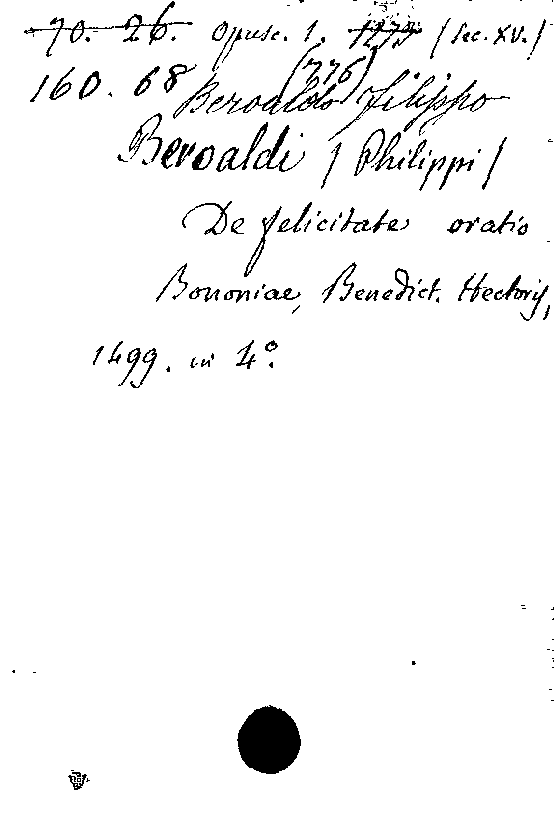 70. 26. Opusc. 1. (Sec. XV.)
160. 68 (776)
Beroaldo Filippo
Beroaldi (Philippi)
De felicitate oratio
Bononiae, Benedict. Hectoris,
1499. in 4°.